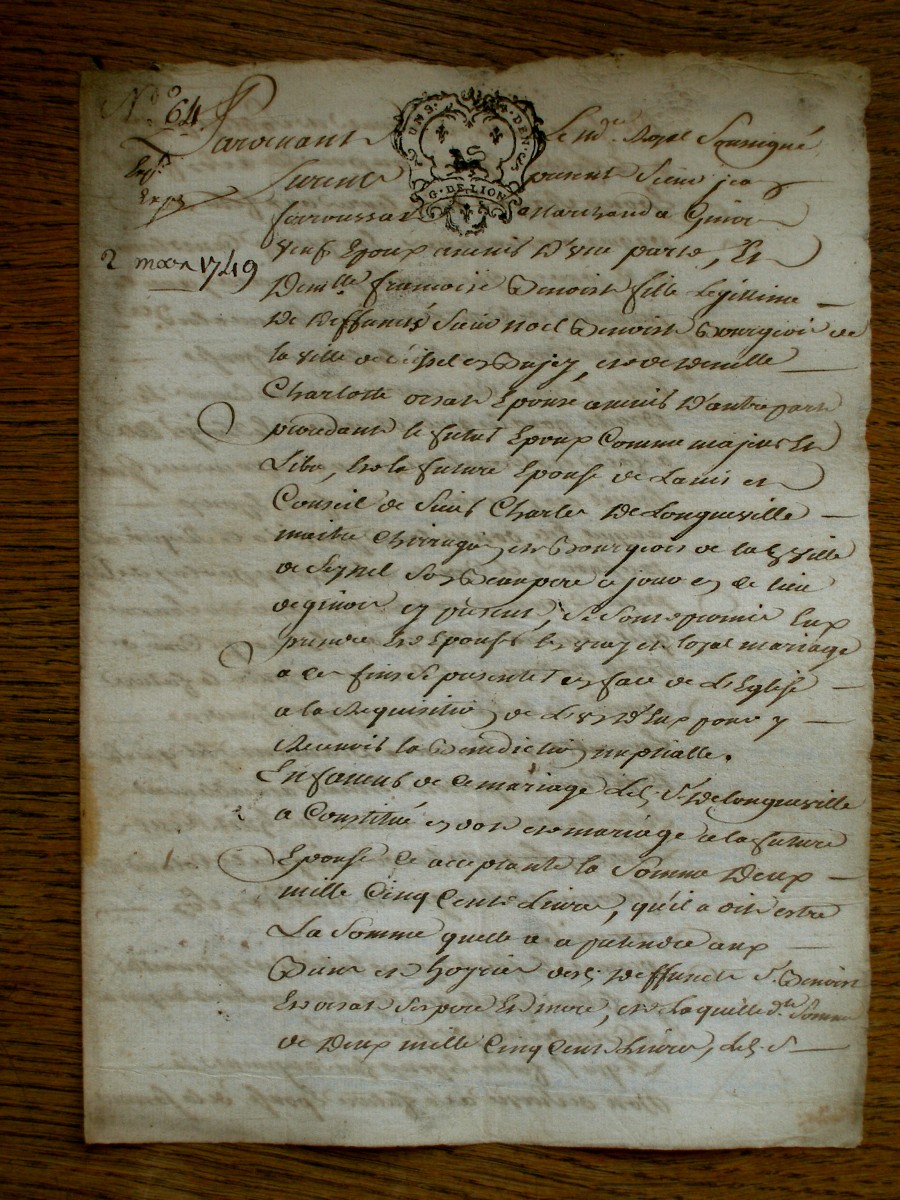 N.° 64
UN S. 4. DEN.
G. DE LION
Pardevant Le No.re Royal Soussigné
Exp.é
furent present Sieur
Marchand a
veuf Epoux avenir D'une parte, Et
2 mars 1749
Demlle francoise Benoist fille Legittime
De Deffuncts Sieur noel Benoist Bourgeois de
la ville de en Bugey, et de Demlle
Charlotte orsat Epouse avenir D'autre part
procedant le futur Epoux Comme majeur Et
Libre, Et la future Epouse de Lavis et
Conseil de Sieur Charles De Longueville
maitre Chirurgien et Bourgeois de la Ville
de Seyssel Son Beaupere a jour en ce lieu
en present, Se Sont promis Eux
prendre Et Epouser en vray et loyal mariage
a ces fins Se presenter en face de L'Eglise
a la Requisition de L'un D'Eux pour y
Recevoir la Benediction nuptialle.
En faveur de Ce mariage Led. Sr De longueville
a Constitué en dot et mariage a la future
Epouse Ce acceptante la Somme Deux
mille Cinq Cents Livres, qu'il a dit estre
La Somme quelle a a pretendre aux
Biens et hoyries desd. Deffuncts Sr Benoist
Et orsat Ses pere Et mere, et Laquelle d.te Somme
de Deux mille Cinq Cent Livres, Led. S